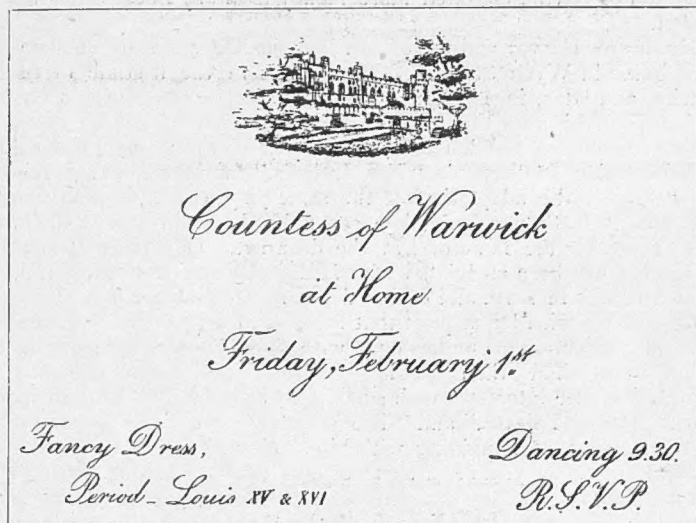 Countess of Warwick
at Home
Friday, February 1st
Fancy Dress,
Period - Louis XV & XVI
Dancing 9.30.
R.S.V.P.